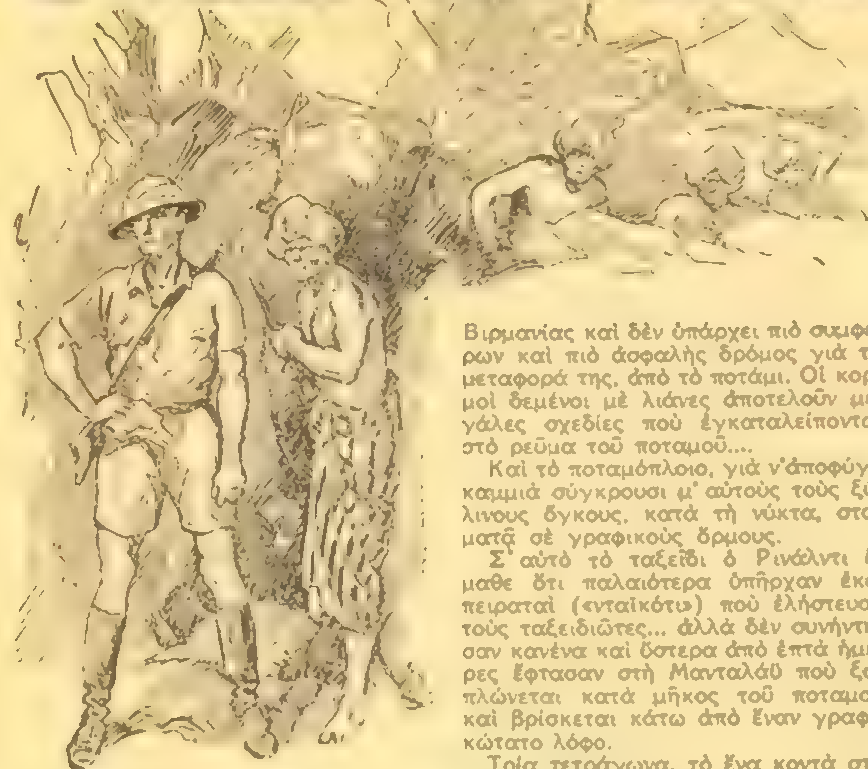 Βιρμανίας καὶ δὲν ὑπάρχει πιὸ συμφέ
ρων καὶ πιὸ ἀσφαλὴς δρόμος γιὰ τ
μεταφορά της, ἀπὸ τὸ ποτάμι. Οἱ κορ
μοὶ δεμένοι μὲ λιάνες ἀποτελοῦν με
γάλες σχεδίες ποὺ ἐγκαταλείποντα
στὸ ρεῦμα τοῦ ποταμοῦ....
Καὶ τὸ ποταμόπλοιο, γιὰ ν' ἀποφύγ
καμμιὰ σύγκρουσι μ' αὐτοὺς τοὺς ξύ
λινους ὄγκους, κατὰ τὴ νύκτα, στα
ματᾷ σὲ γραφικοὺς ὅρμους.
Σ' αὐτὸ τὸ ταξεῖδι ὁ Ρινάλντι ἔ
μαθε ὅτι παλαιότερα ὑπῆρχαν ἐκε
πειραταὶ («νταϊκότι») ποὺ ἐλήστευα
τοὺς ταξειδιῶτες... ἀλλὰ δὲν συνήντη
σαν κανένα καὶ ὕστερα ἀπὸ ἑπτὰ ἡμέ
ρες ἔφτασαν στὴ Μανταλάϋ ποὺ ξα
πλώνεται κατὰ μῆκος τοῦ ποταμο
καὶ βρίσκεται κάτω ἀπὸ ἕναν γραφι
κώτατο λόφο.
Τρία τετράγωνα, τὸ ἕνα κοντὰ στ